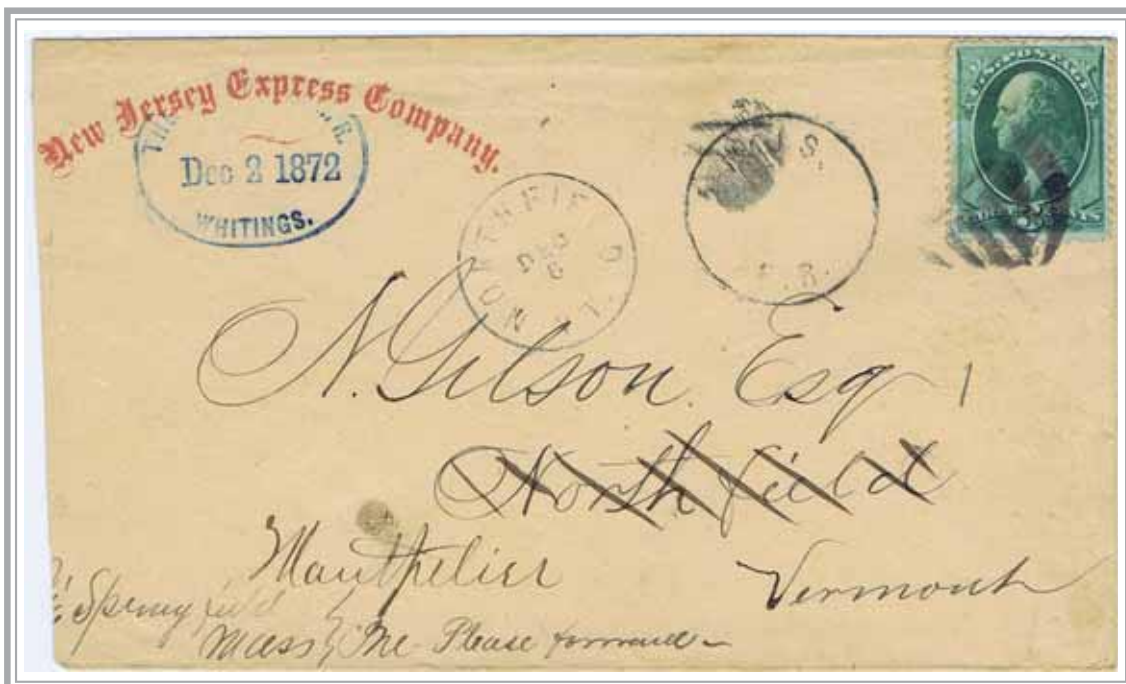 New Jersey Express Company.
Dec 2 1872
WHITINGS.
NORTHFIELD
DEC
6
S.
R.
U.S. POSTAGE
N. Gilson. Esq
Northfield
Montpelier
Vermont
Springfield
Mass Please forward